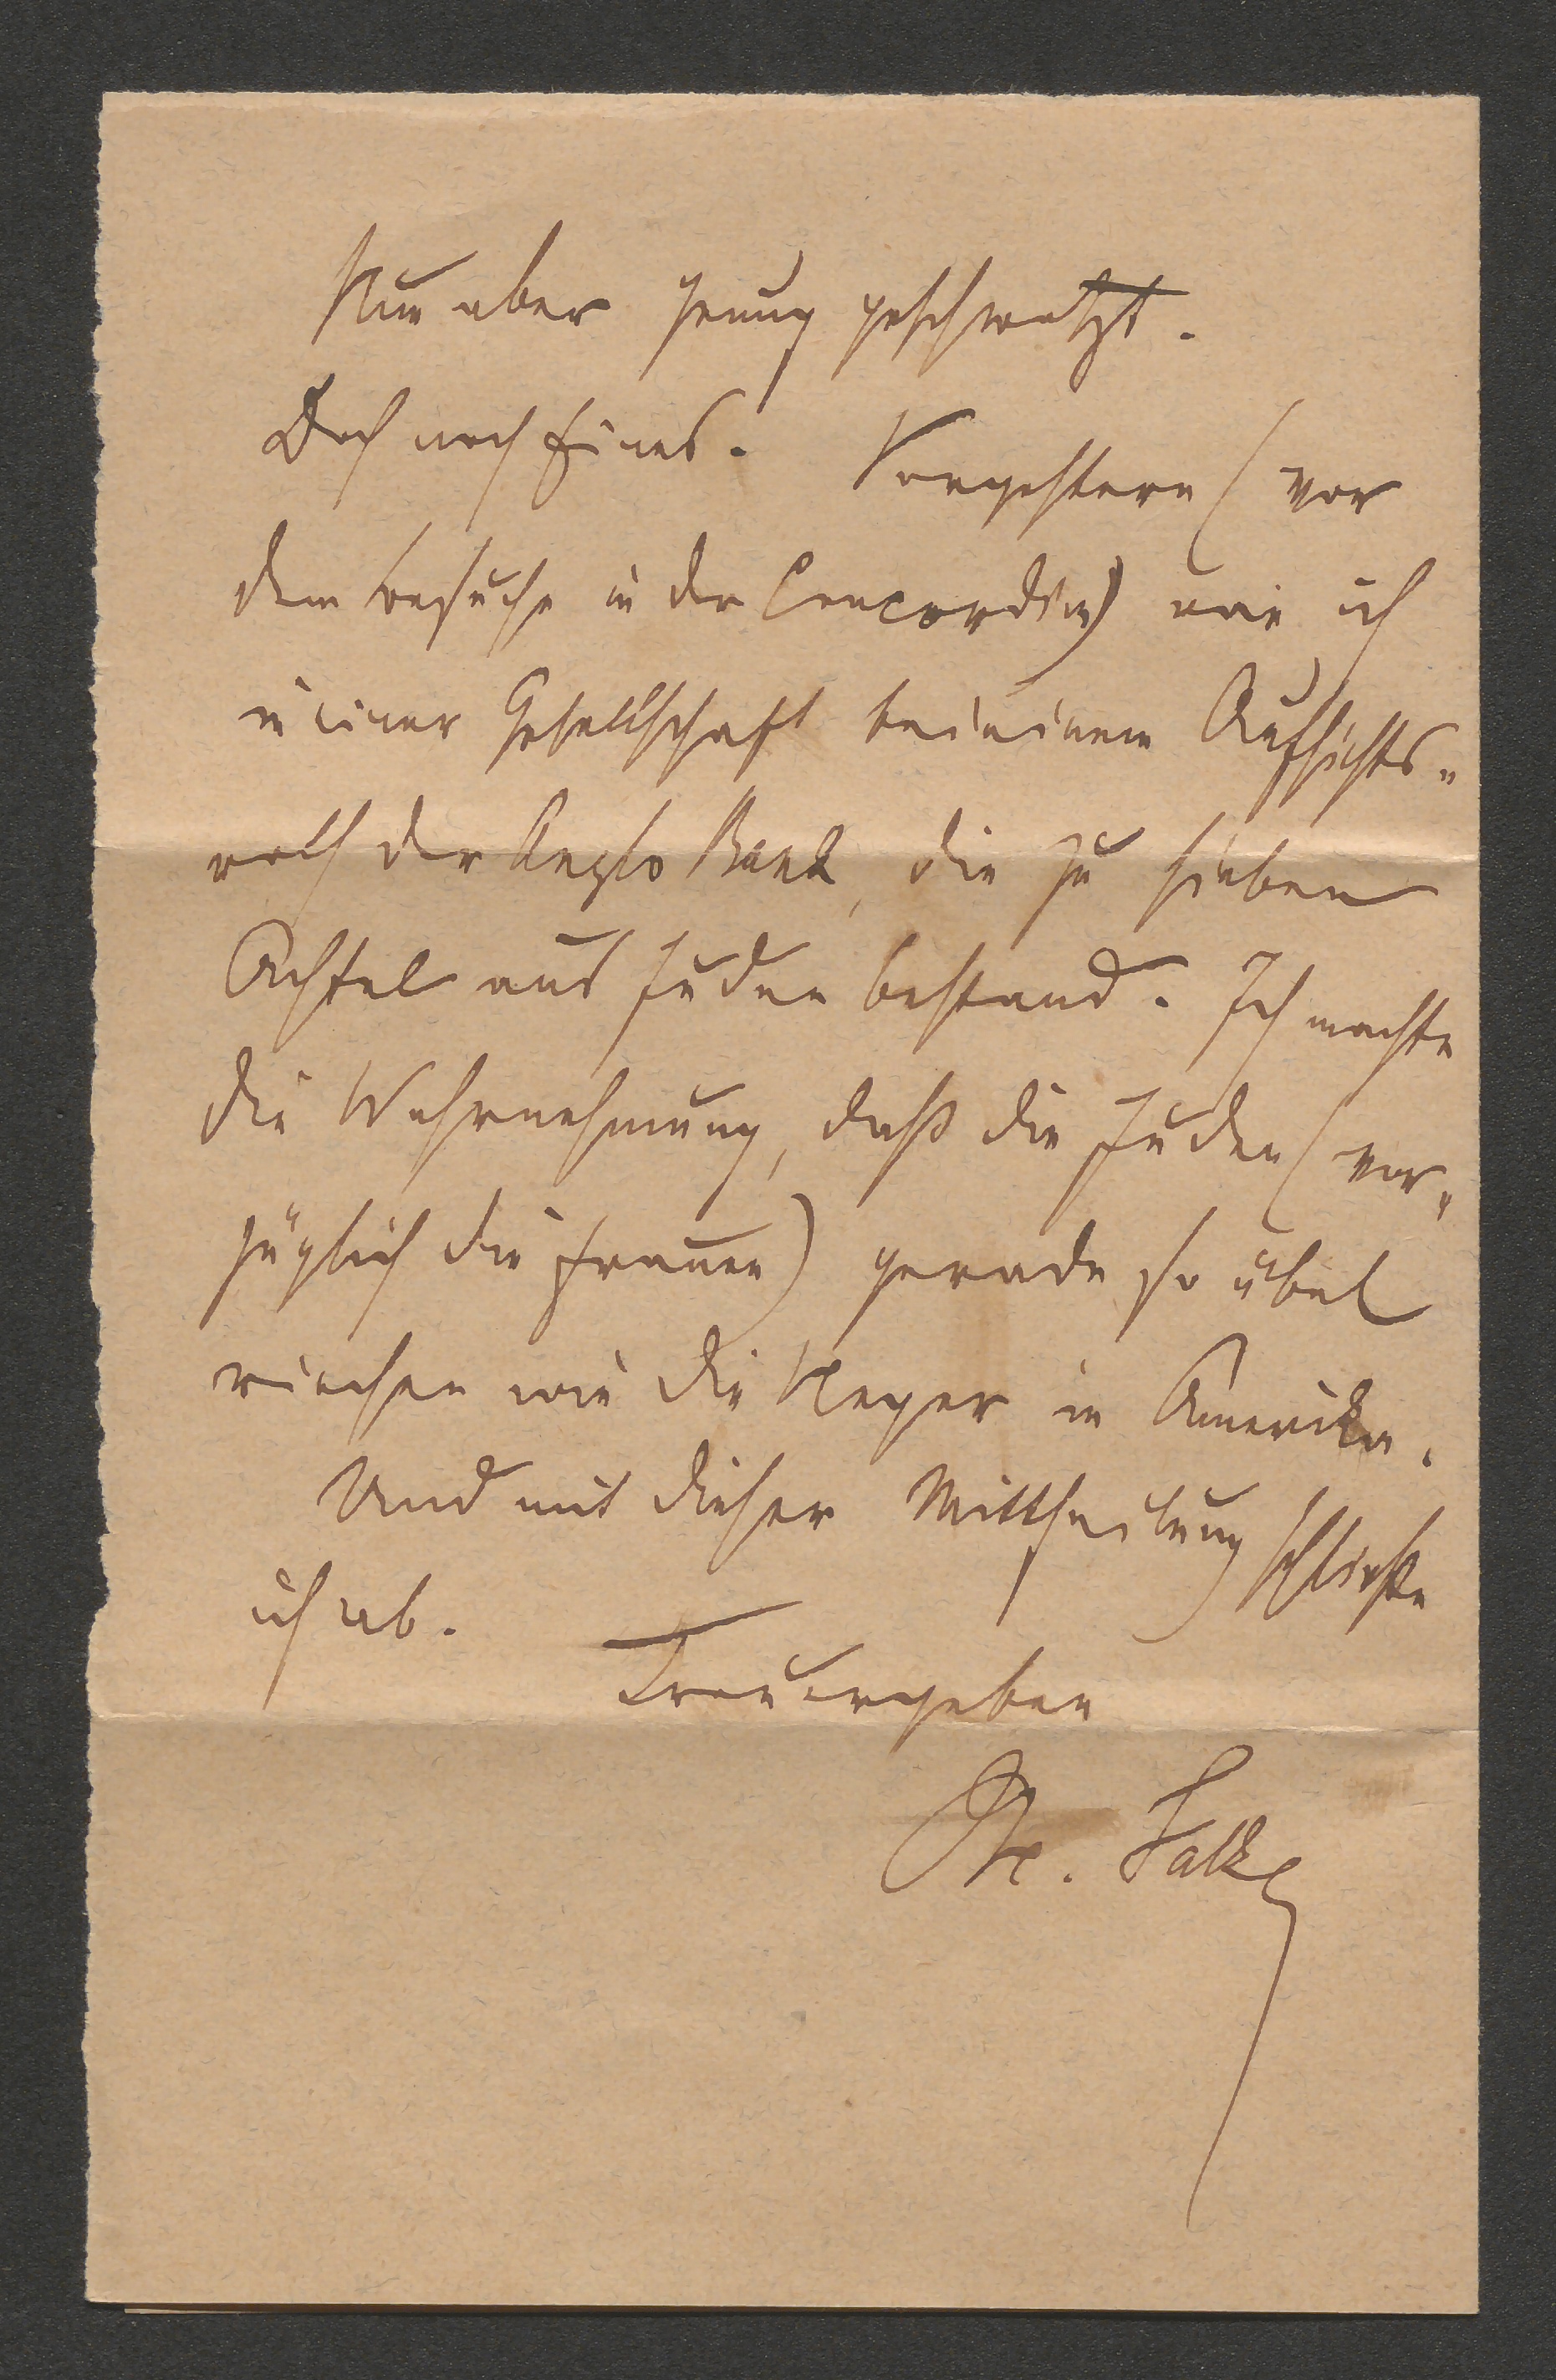 Nun aber genug geschwatzt.
Doch noch Eines. Vorgestern (vor
dem Besuche in der Concordia) war ich
in einer Gesellschaft bei einem Aufsichts-
rath der Anglo Bank, die zu sieben
Achtel aus Juden bestand. Ich machte
die Wahrnehmung, daß die Juden (vor-
züglich die Frauen) gerade so übel
riechen wie die Neger in Amerika.
Und mit dieser Mittheilung schließe
ich ab.
Treuergeben
Falke